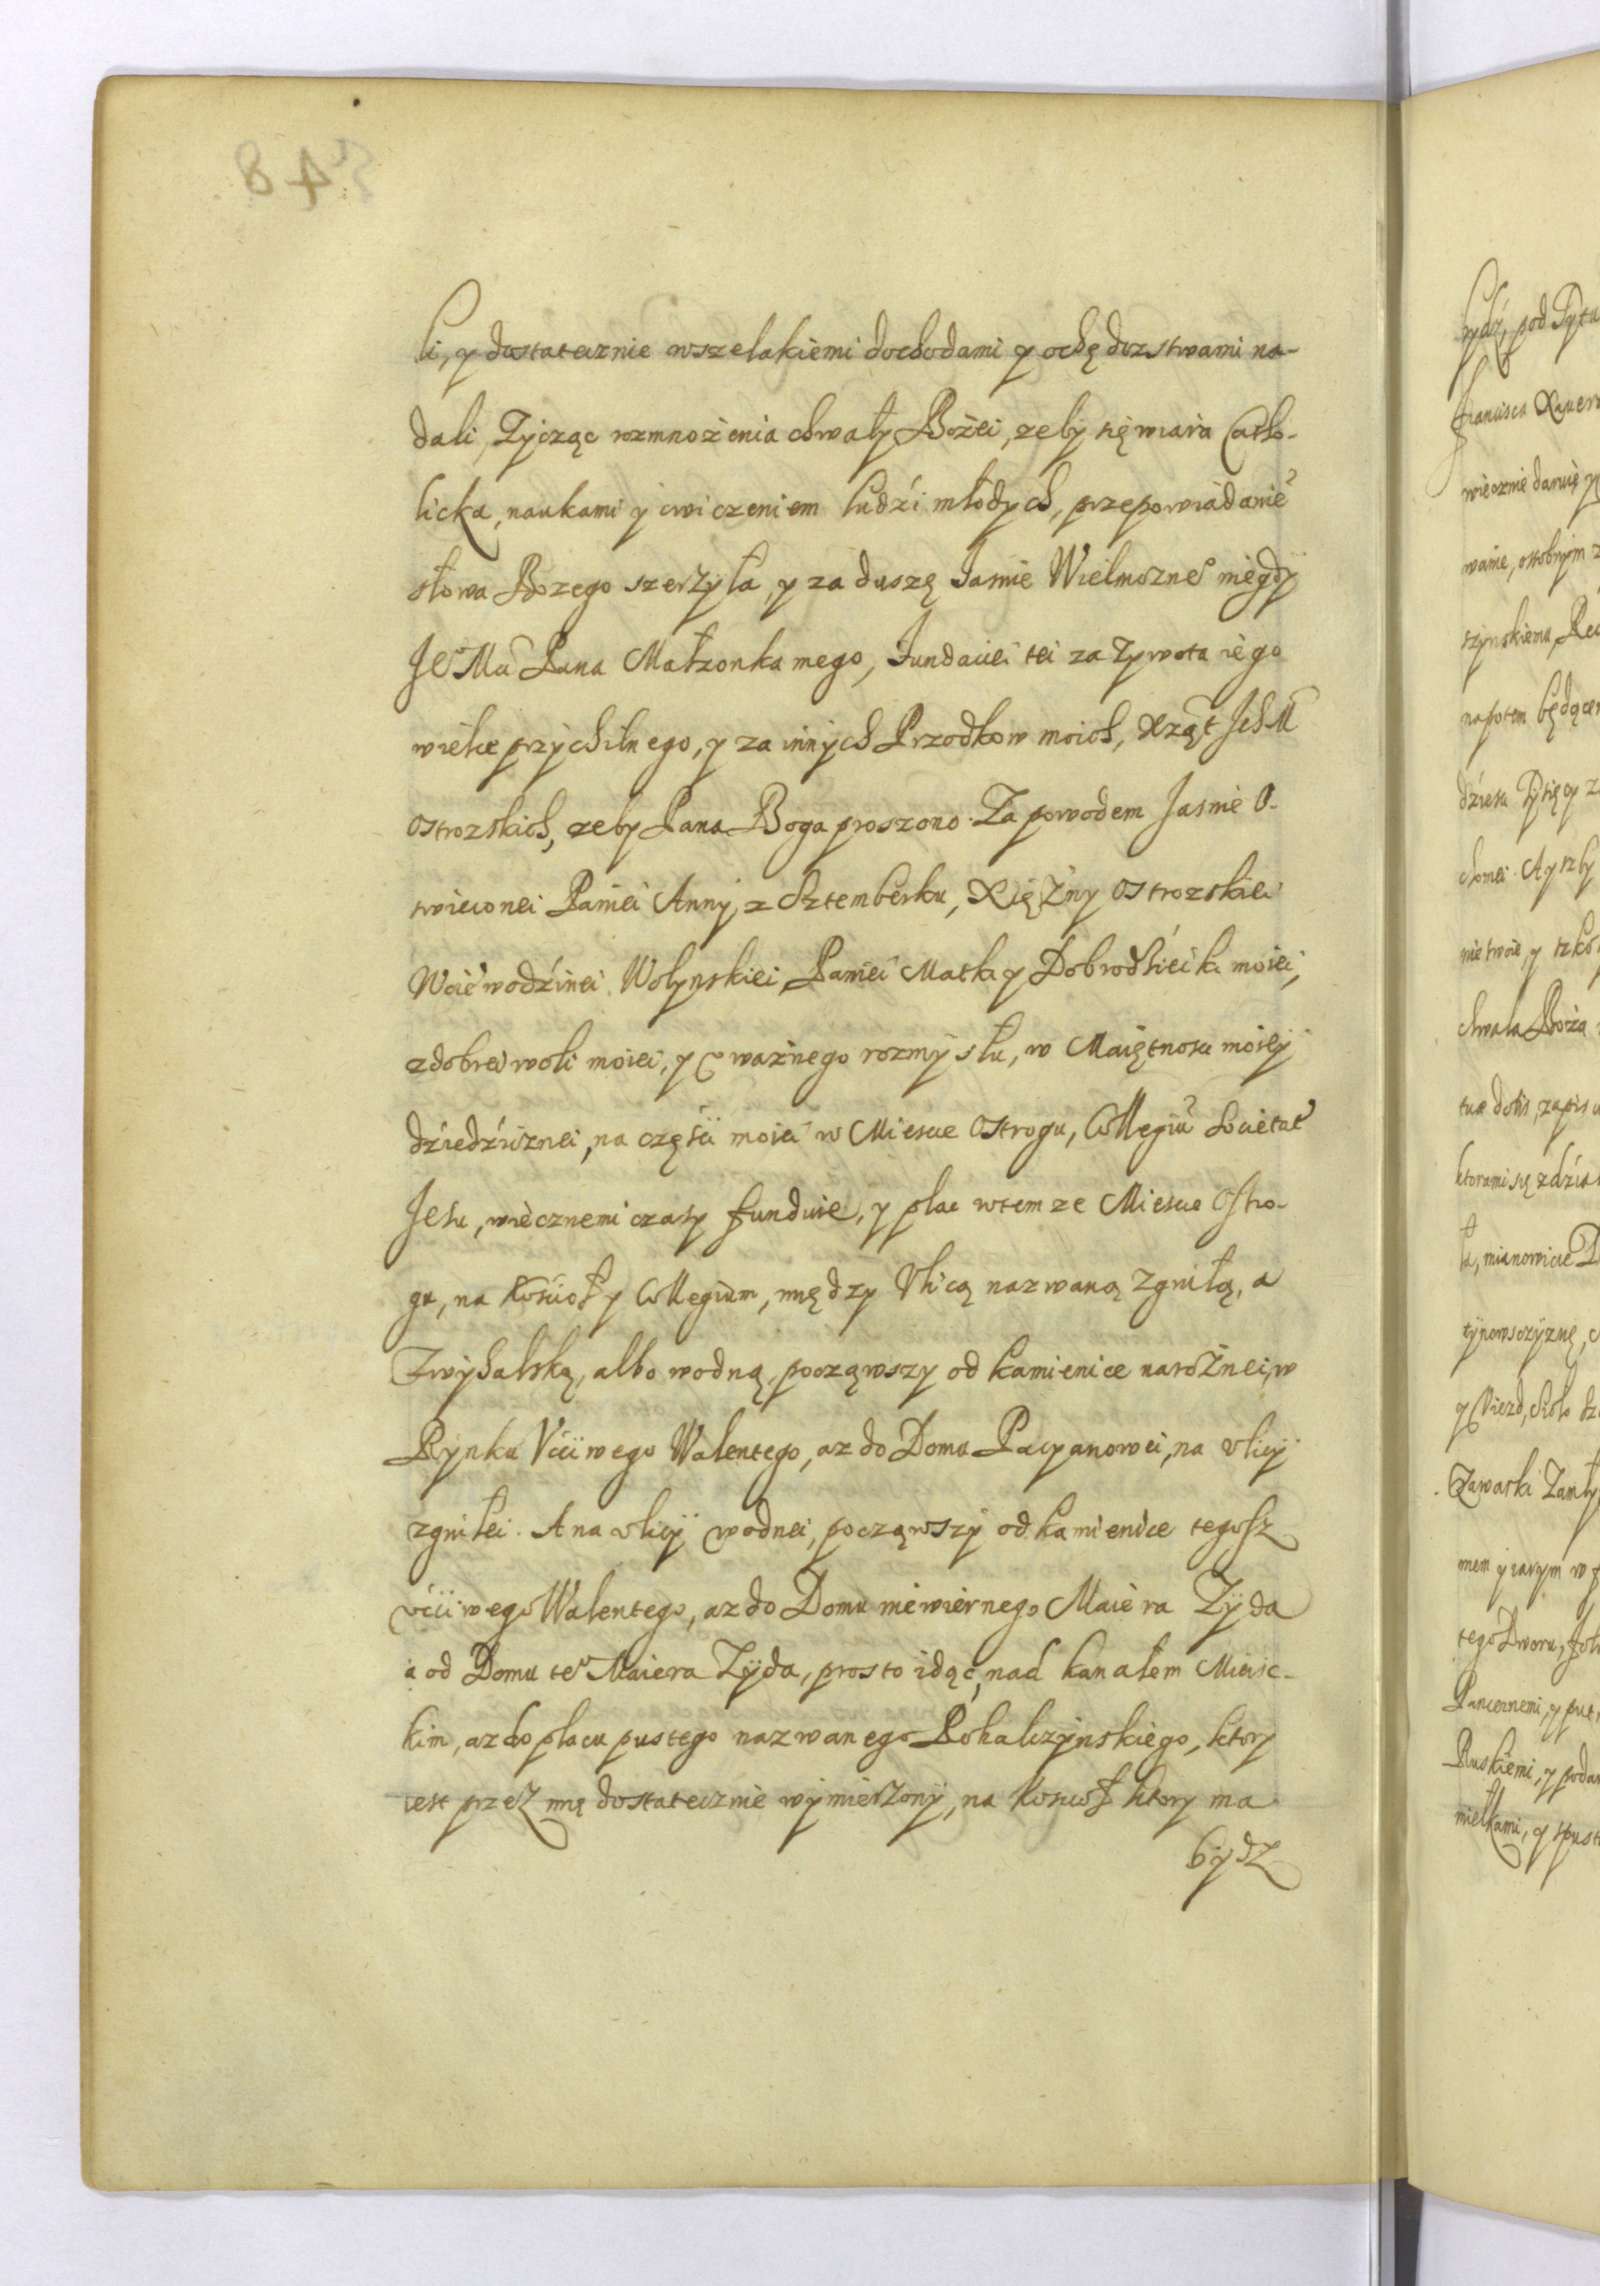 li, y dostatecznie wszelakiemi dochodami y ochędozstwami na-
dali, Zycząc rozmnożenia chwały Bożei, zeby się wiara Catho-
licka, naukami y cwiczeniem ludźi młodych, przepowiadanie
słowa Bozego szerzyła, y za duszę Jasnie Wielmozne niegdy
Je Mci Pana Małzonka mego, Fundaciei tei za Zywota iego
wielce przychilnego, y za innych Przodkow moich, Xząt Jch M
Ostrozskich, zeby Pana Boga proszono. Za powodem Jasnie O-
swieconei Paniei Anny z Sztemberku, Xięźny Ostrozskiei
Woiewodźinei Wołynskiei Paniei Matki y Dobrodźieiki moiei,
z dobrei woli moiei, y vważnego rozmysłu, w Maiętnosci moiey
dźiedźicznei, na częśći moiei w Miescie Ostrogu, Collegiu Societat
Jesu, wiecznemi czasy funduie, y plac w tem ze Miescie Ostro-
gu, na Kośćioł y Collegium, między Vlicą nazwaną Zgniłą, a
Zwyhalską, albo wodną, począwszy od kamienice narożnei, w
Rynku Vććiwego Walentego, az do Domu Pacyanowei, na vlicy
zgniłei. A na vlicy wodnei, począwszy od kamienice tegosz
vććiwego Walentego, az do Domu niewiernego Maiera Zyda
a od Domu te Maiera Zyda, prosto idąc, nad kanałem Mieisc-
kim, az do placu pustego nazwanego Rohalczynskiego, ktory
iest przez mię dostatecznie wymierzony, na Koscioł ktory ma
bydz
rydz, pod Tytu
Francisca Xaver
wiecznie daruię y
wanie, osobnym z
szynskiemu, Re
napotem będące
Tysięcy z
nie twoie, y szko
chwała Boża
zapis
ktorami się
mianowicie
y
Zamły
tego Dworu,
Pancernemi, y put
Ruskiemi, y podar